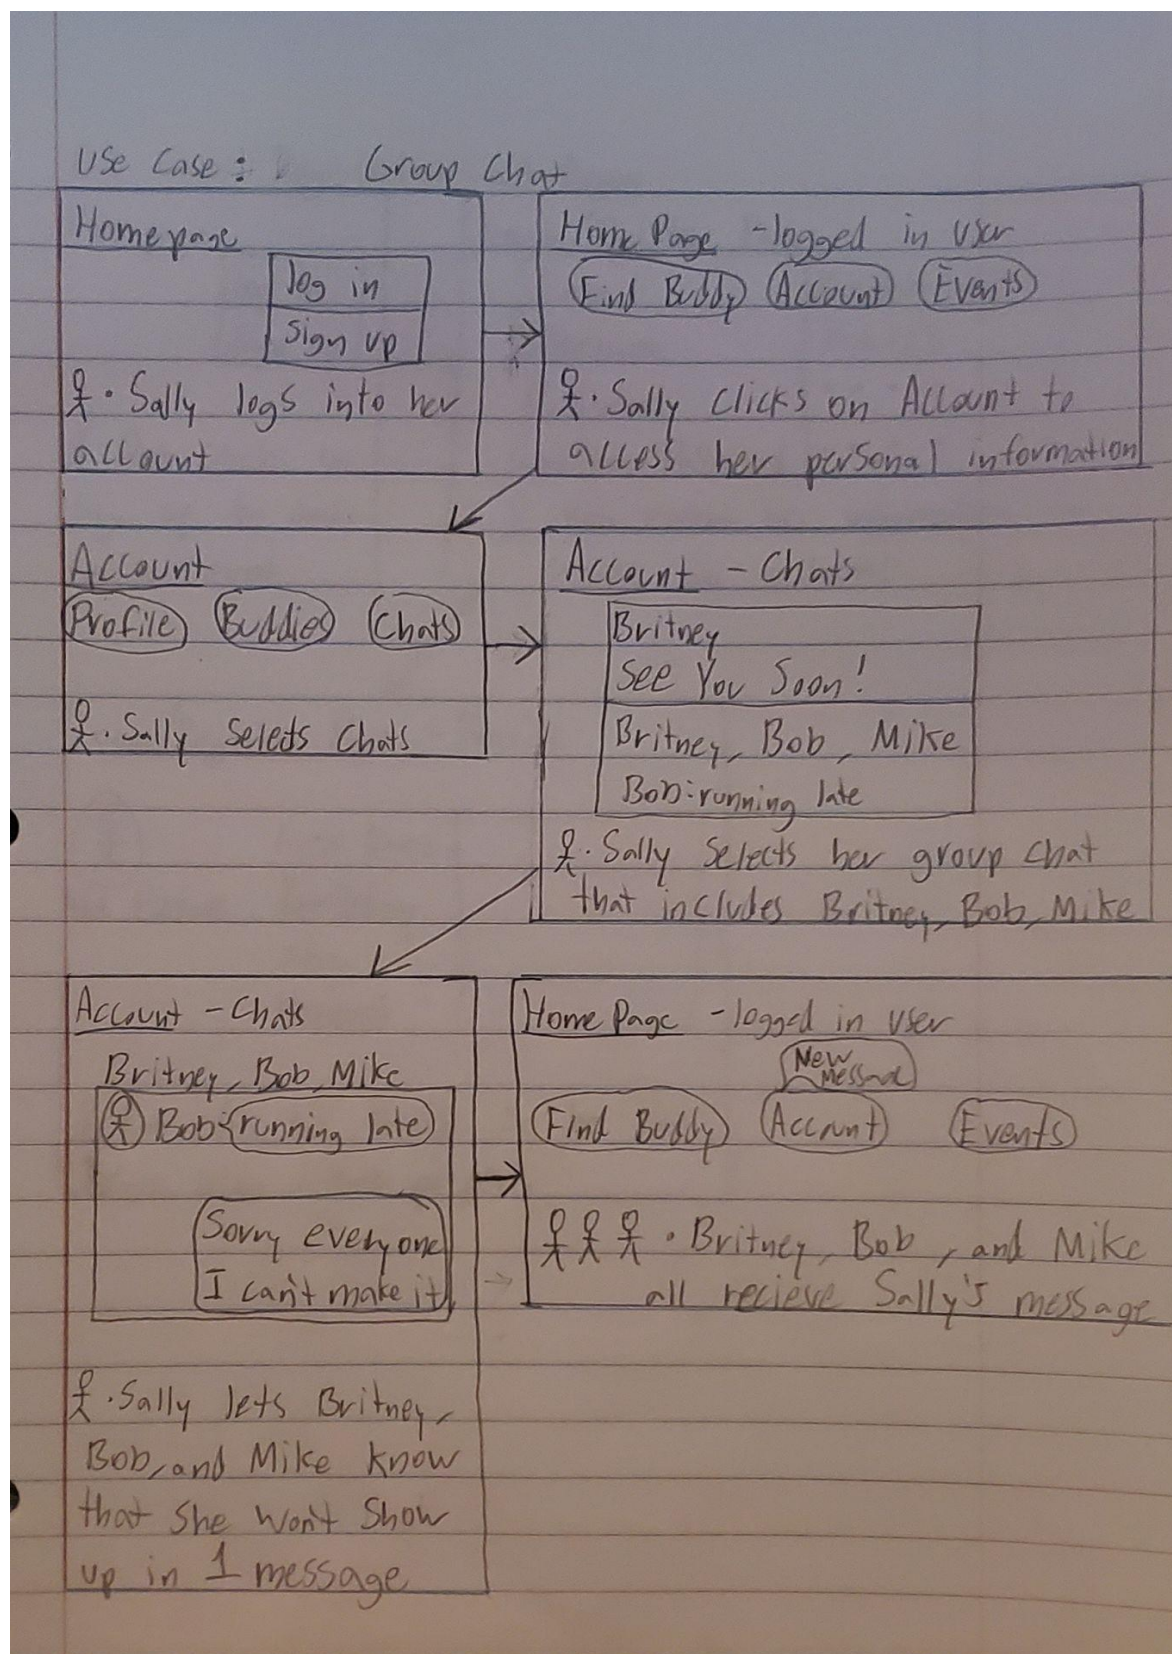 Use Case: Group Chat
Homepage
log in
sign up
· Sally logs into her
account
Home Page - logged in user
Find Buddy Account Events
· Sally clicks on Account to
access her personal information
Account
Profile Buddies Chats
· Sally selects Chats
Account - Chats
Britney
See You Soon!
Britney, Bob, Mike
Bob: running late
· Sally selects her group chat
that includes Britney, Bob, Mike
Account - Chats
Britney, Bob, Mike
Bob: running late
Sorry everyone
I can't make it
· Sally lets Britney,
Bob, and Mike know
that she won't show
up in 1 message
Home Page - logged in user
New
Message
Find Buddy Account Events
· Britney, Bob, and Mike
all recieve Sally's message